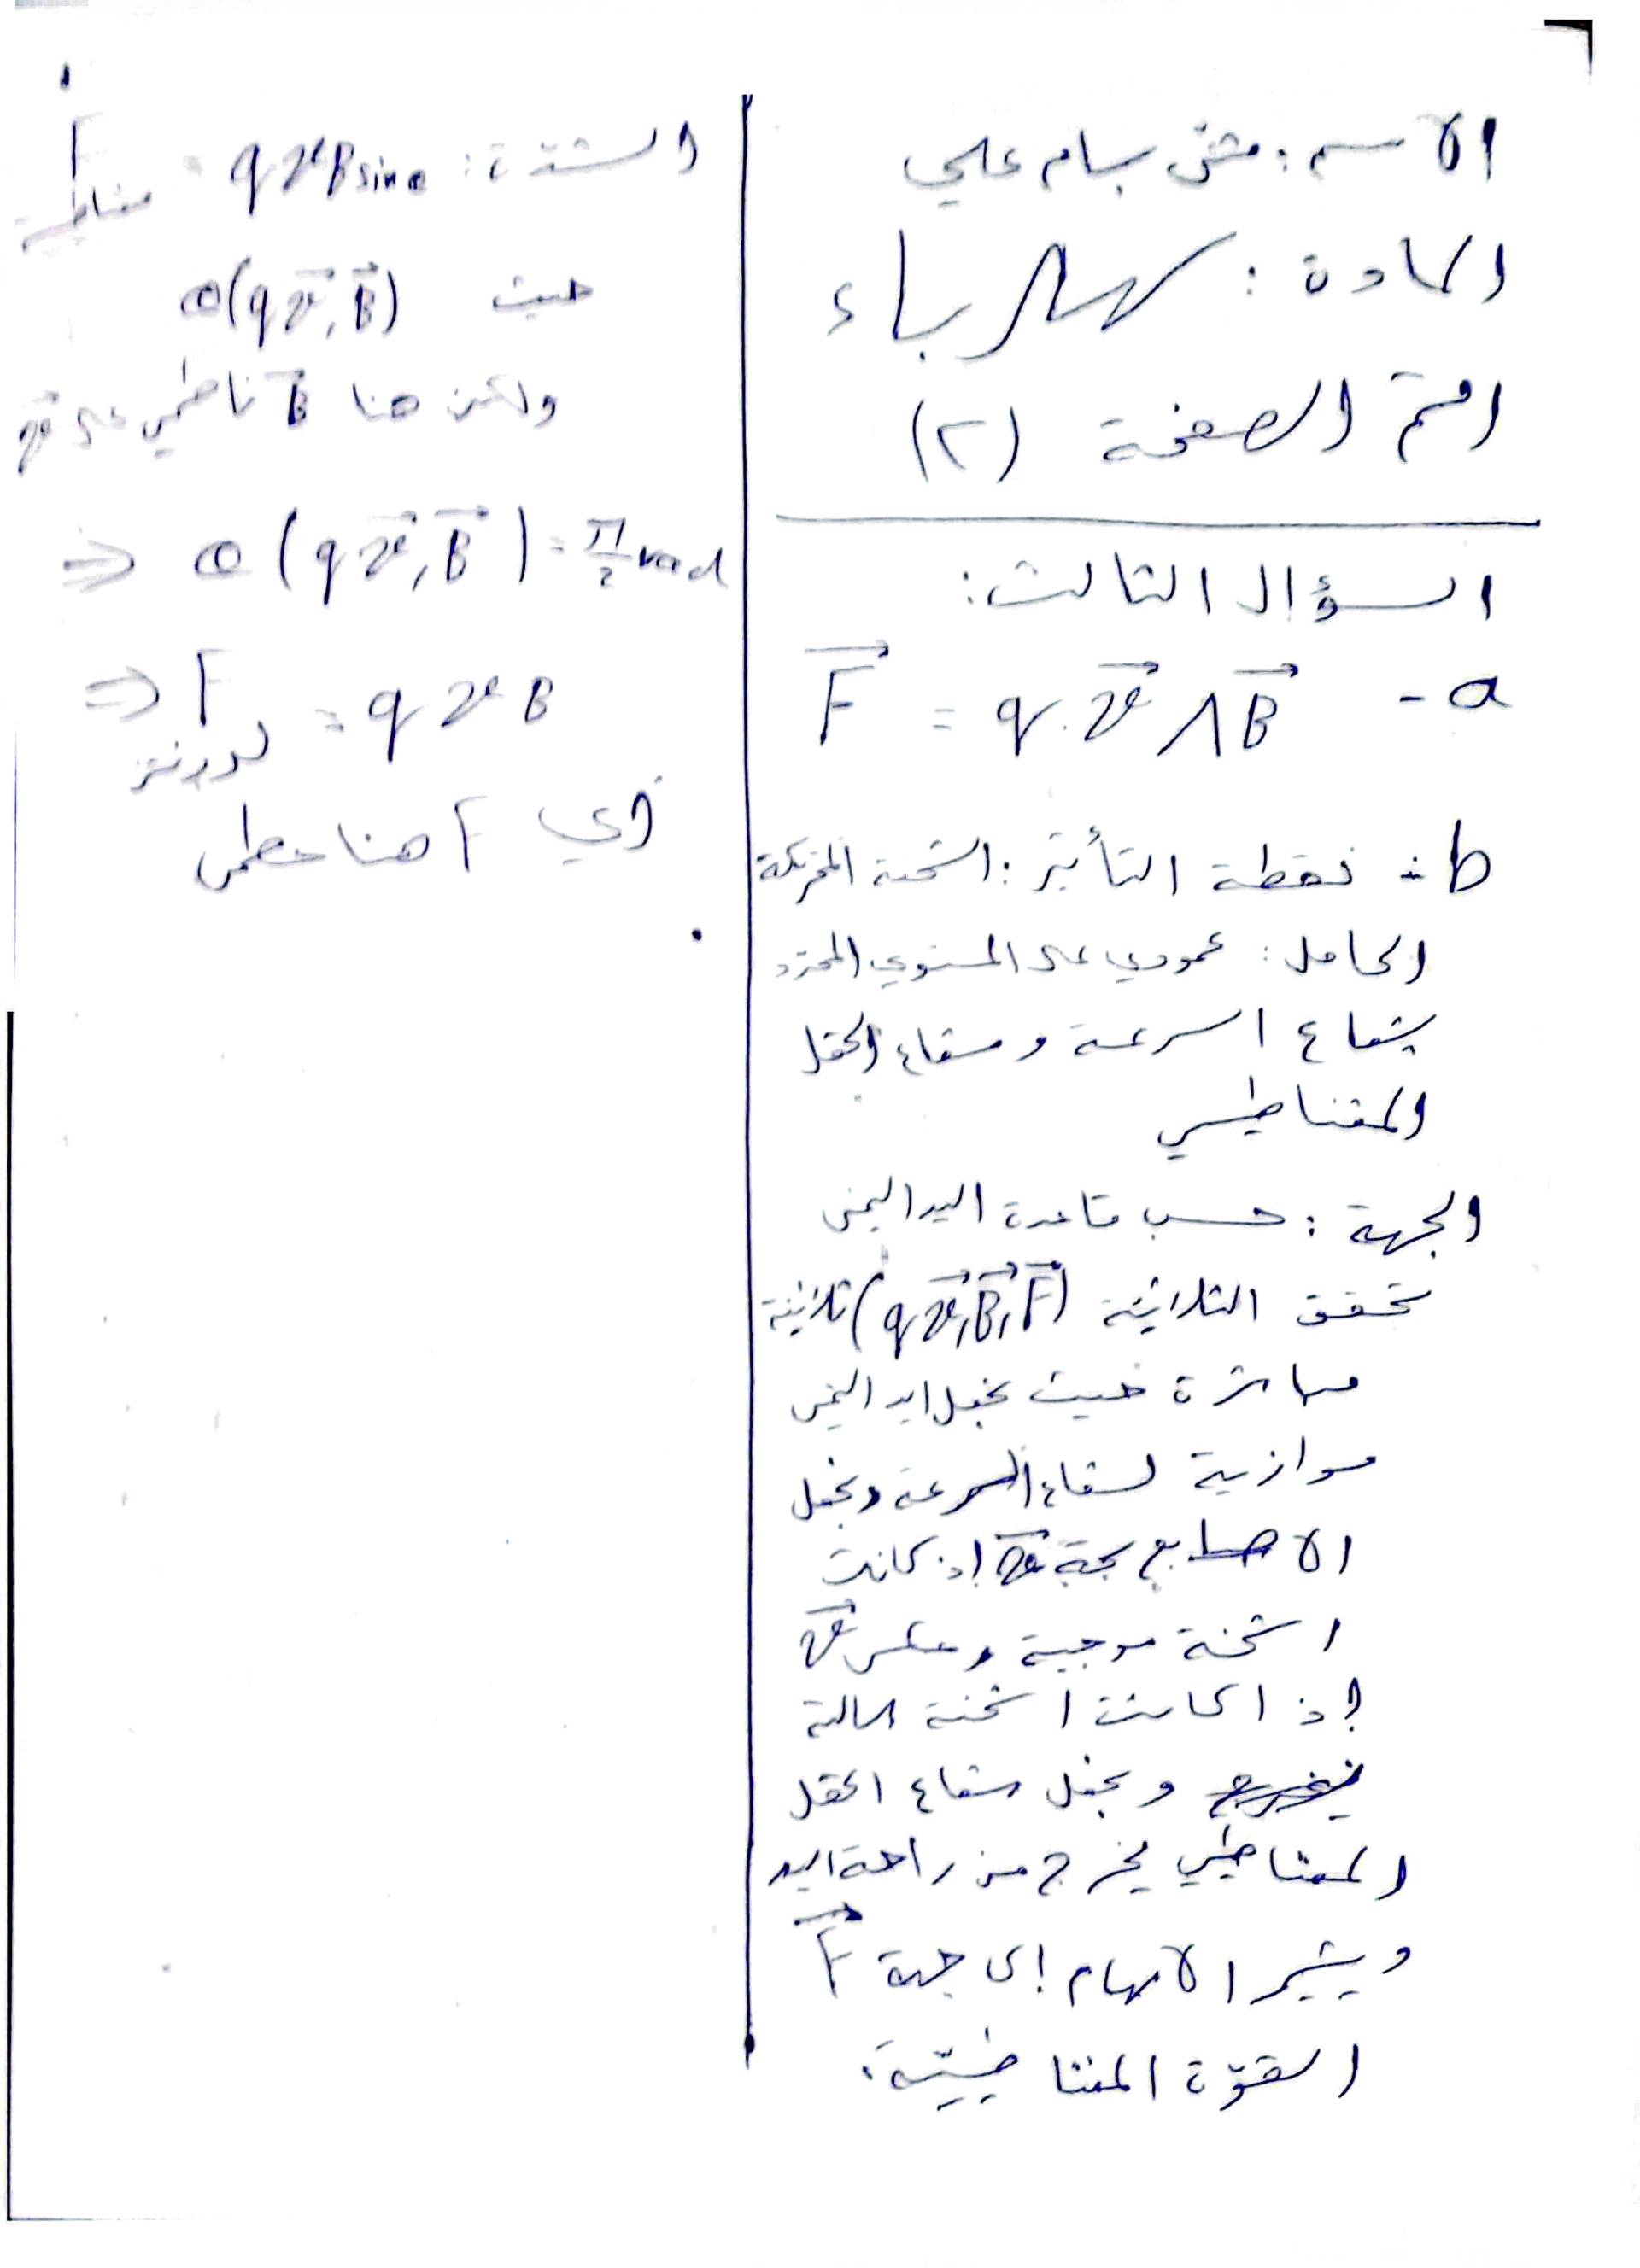 الاسم: مثنى بسام علي
المادة: كهرباء
رقم الصفحة (٢)
السؤال الثالث:
a - F = q.v ∧ B
b - نقطة التأثير: الشحنة المتحركة
الحامل: عمودي على المستوي المحدد
بشعاع السرعة وشعاع الحقل
المغناطيسي
الجهة: حسب قاعدة اليد اليمنى
تحقق الثلاثية (qv, B, F) ثلاثية
مباشرة حيث نجعل اليد اليمنى
موازية لشعاع السرعة ونجعل
الاصابع بجهة v إذ كانت
الشحنة موجبة وعكس v
إذا كانت الشحنة سالبة
ونجعل شعاع الحقل
المغناطيسي يخرج من راحة اليد
ويشير الابهام إلى جهة F
القوة المغناطيسية.
الشدة: F مغناطيسية = qvB sin θ
حيث θ(qv, B)
ولكن هنا B ناظمي على v
⇒ θ(qv, B) = π/2 rad
⇒ F لورنتز = qvB
أي F هنا عظمى